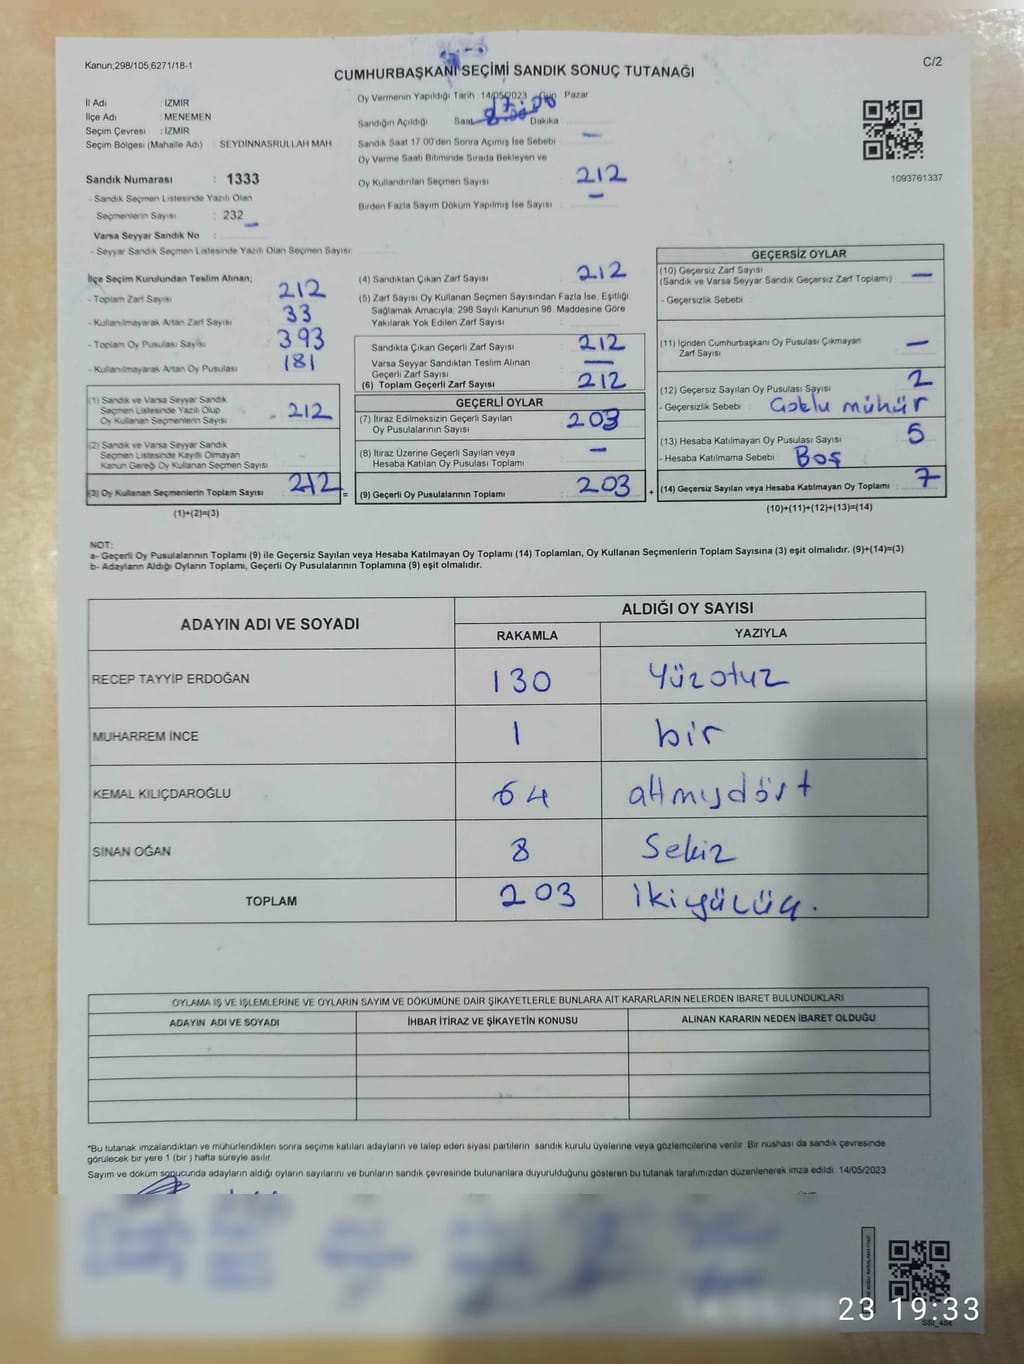 Kanun;298/105,6271/18-1
C/2
CUMHURBAŞKANI SEÇİMİ SANDIK SONUÇ TUTANAĞI
İl Adı : İZMİR
İlçe Adı : MENEMEN
Seçim Çevresi : İZMİR
Seçim Bölgesi (Mahalle Adı) SEYDİNNASRULLAH MAH.
Sandık Numarası : 1333
- Sandık Seçmen Listesinde Yazılı Olan
Seçmenlerin Sayısı : 232
Varsa Seyyar Sandık No : —
- Seyyar Sandık Seçmen Listesinde Yazılı Olan Seçmen Sayısı :
Oy Vermenin Yapıldığı Tarih 14/05/2023 Gün Pazar
Sandığın Açıldığı Saat 17:00 Dakika
Sandık Saat 17.00'den Sonra Açılmış İse Sebebi —
Oy Verme Saati Bitiminde Sırada Bekleyen ve
Oy Kullandırılan Seçmen Sayısı 212
Birden Fazla Sayım Döküm Yapılmış İse Sayısı : —
1093761337
İlçe Seçim Kurulundan Teslim Alınan;
- Toplam Zarf Sayısı : 212
- Kullanılmayarak Artan Zarf Sayısı : 33
- Toplam Oy Pusulası Sayısı : 393
- Kullanılmayarak Artan Oy Pusulası : 181
(1) Sandık ve Varsa Seyyar Sandık
Seçmen Listesinde Yazılı Olup
Oy Kullanan Seçmenlerin Sayısı : 212
(2) Sandık ve Varsa Seyyar Sandık
Seçmen Listesinde Kayıtlı Olmayan
Kanun Gereği Oy Kullanan Seçmen Sayısı :
(3) Oy Kullanan Seçmenlerin Toplam Sayısı : 212 =
(1)+(2)=(3)
(4) Sandıktan Çıkan Zarf Sayısı : 212
(5) Zarf Sayısı Oy Kullanan Seçmen Sayısından Fazla İse, Eşitliği
Sağlamak Amacıyla, 298 Sayılı Kanunun 98. Maddesine Göre
Yakılarak Yok Edilen Zarf Sayısı :
Sandıkta Çıkan Geçerli Zarf Sayısı : 212
Varsa Seyyar Sandıktan Teslim Alınan
Geçerli Zarf Sayısı : —
(6) Toplam Geçerli Zarf Sayısı : 212
GEÇERLİ OYLAR
(7) İtiraz Edilmeksizin Geçerli Sayılan
Oy Pusulalarının Sayısı : 203
(8) İtiraz Üzerine Geçerli Sayılan veya
Hesaba Katılan Oy Pusulası Toplamı : —
(9) Geçerli Oy Pusulalarının Toplamı : 203 +
GEÇERSİZ OYLAR
(10) Geçersiz Zarf Sayısı
(Sandık ve Varsa Seyyar Sandık Geçersiz Zarf Toplamı) : —
- Geçersizlik Sebebi :
(11) İçinden Cumhurbaşkanı Oy Pusulası Çıkmayan
Zarf Sayısı : —
(12) Geçersiz Sayılan Oy Pusulası Sayısı : 2
- Geçersizlik Sebebi : Çoklu mühür
(13) Hesaba Katılmayan Oy Pusulası Sayısı : 5
- Hesaba Katılmama Sebebi : Boş
(14) Geçersiz Sayılan veya Hesaba Katılmayan Oy Toplamı : 7
(10)+(11)+(12)+(13)=(14)
NOT:
a- Geçerli Oy Pusulalarının Toplamı (9) ile Geçersiz Sayılan veya Hesaba Katılmayan Oy Toplamı (14) Toplamları, Oy Kullanan Seçmenlerin Toplam Sayısına (3) eşit olmalıdır. (9)+(14)=(3)
b- Adayların Aldığı Oyların Toplamı, Geçerli Oy Pusulalarının Toplamına (9) eşit olmalıdır.
ADAYIN ADI VE SOYADI ALDIĞI OY SAYISI
RAKAMLA YAZIYLA
RECEP TAYYİP ERDOĞAN 130 Yüzotuz
MUHARREM İNCE 1 bir
KEMAL KILIÇDAROĞLU 64 altmışdört
SİNAN OĞAN 8 Sekiz
TOPLAM 203 ikiyüzüç.
OYLAMA İŞ VE İŞLEMLERİNE VE OYLARIN SAYIM VE DÖKÜMÜNE DAİR ŞİKAYETLERLE BUNLARA AİT KARARLARIN NELERDEN İBARET BULUNDUKLARI
ADAYIN ADI VE SOYADI İHBAR İTİRAZ VE ŞİKAYETİN KONUSU ALINAN KARARIN NEDEN İBARET OLDUĞU
*Bu tutanak imzalandıktan ve mühürlendikten sonra seçime katılan adayların ve talep eden siyasi partilerin sandık kurulu üyelerine veya gözlemcilerine verilir. Bir nüshası da sandık çevresinde
görülecek bir yere 1 (bir ) hafta süreyle asılır.
Sayım ve döküm sonucunda adayların aldığı oyların sayılarını ve bunların sandık çevresinde bulunanlara duyurulduğunu gösteren bu tutanak tarafımızdan düzenlenerek imza edildi. 14/05/2023
23 19:33